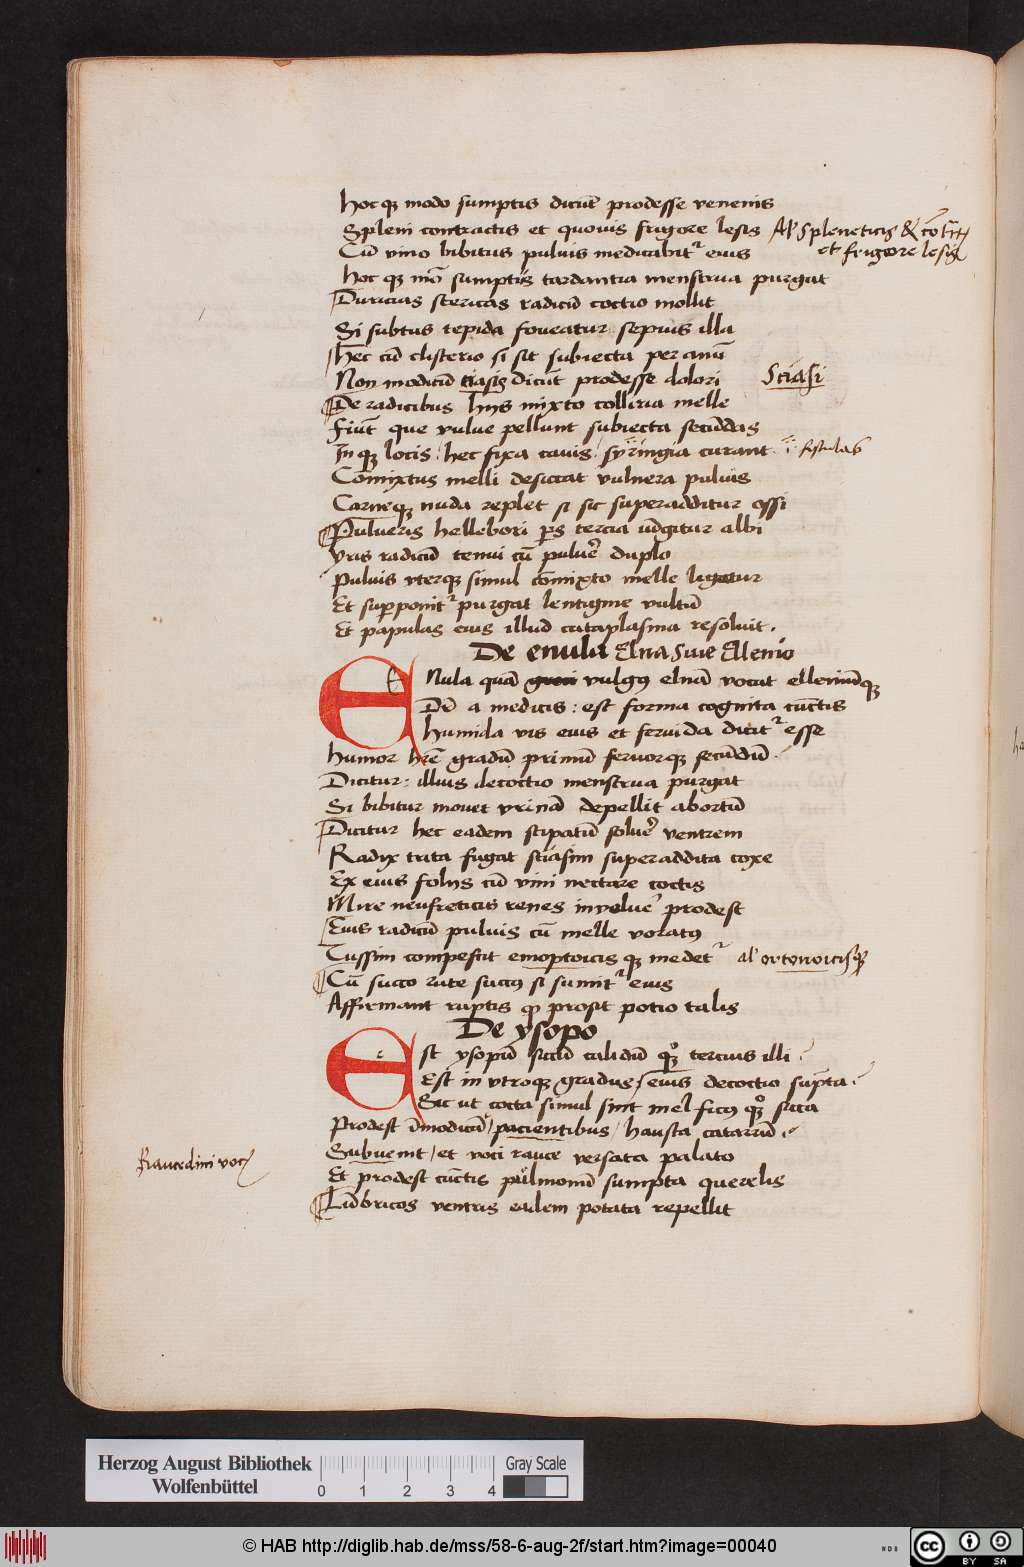 hoc qꝫ modo sumptis dicūt prodesse venenis
Spleni contractis et quouis frigore lesis Al' Spleneticis &
et frigore lesis
Cū vino bibitus puluis medicabit᷑ eius
hoc qꝫ mō sumptis tardantia menstrua purgat
Duricias stericas radicū coctio mollit
Si subtus tepida foueatur sepius illa
hec cū clisterio si sit subiecta per anū
Non modicū ciasis dicūt prodesse dolori Sciasi
De radicibus hijs mixto colliria melle
fiūt que vulue pellunt subiecta secūdas
In qꝫ locis / hec fixa cauis / syringia curant .i. fistulas
Cōmixtus melli desiccat vulnera puluis
Carneqꝫ nuda replet si sic superadditur ossi
Pulueris hellebori ꝑs tercia iūgitur albi
yris radicū tenui cū puluer̄ duplo
Puluis vterqꝫ simul cōmixto melle ligatur
Et supponit᷑ purgat lentigine vultū
Et papulas eius illud cataplasma resoluit .
De enula Elna Siue Elenio
E Nula quā vulgꝰ elnā vocat elleniūqꝫ
Dē a medicis : est forma cognita cūctis
humida vis eius et feruida dicit᷑ esse
humor hr̄e gradū primū feruorqꝫ secūdū
Dicitur : illius decoctio menstrua purgat
Si bibitur mouet vrinā depellit abortū
Dicitur hec eadem stipatū soluer̄ ventrem
Radix trita fugat sciasim superaddita coxe
Ex eius folijs cū vini nectare coctis
Mire neufreticis renes inuoluer̄ prodest
Eius radicū puluis cū melle voratꝰ
Tussim compescit emoptoicis qꝫ medet᷑ al' ortonoicisqꝫ
Cū succo rute succꝰ si sumit᷑ eius
Affirmant ruptis qđ prosit potio talis
De ysopo
E st ysopū siccū calidū qꝫ tercius illi
Est in vtroqꝫ gradus / eius decoctio sūpta
Sic ut cocta simul sint mel ficꝰ qꝫ sicca
Prodest īmodicū / pacientibus / hausta catarrū
Subuenit / et voci rauce versata palato
Raucedini vocis
Et prodest cūctis pulmonū sumpta querelis
Lūbricos ventris eadem potata repellit
Herzog August Bibliothek
Wolfenbüttel
0 1 2 3 4
Gray Scale
© HAB http://diglib.hab.de/mss/58-6-aug-2f/start.htm?image=00040
cc BY SA